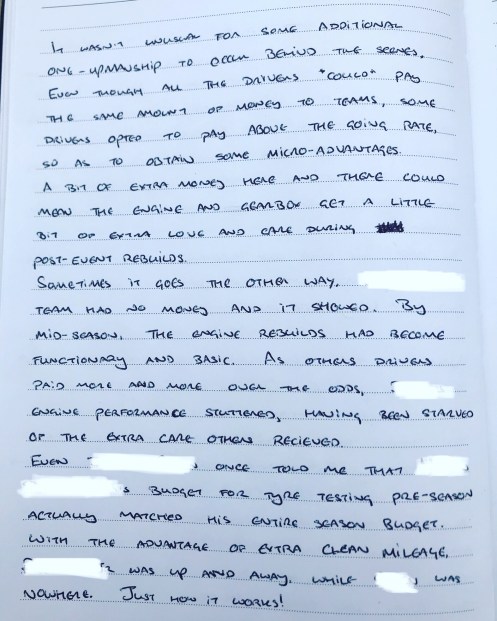 IT WASN'T UNUSUAL FOR SOME ADDITIONAL
ONE-UPMANSHIP TO OCCUR BEHIND THE SCENES.
EVEN THOUGH ALL THE DRIVERS "COULD" PAY
THE SAME AMOUNT OF MONEY TO TEAMS, SOME
DRIVERS OPTED TO PAY ABOVE THE GOING RATE,
SO AS TO OBTAIN SOME MICRO-ADVANTAGES.
A BIT OF EXTRA MONEY HERE AND THERE COULD
MEAN THE ENGINE AND GEARBOX GET A LITTLE
BIT OF EXTRA LOVE AND CARE DURING
POST-EVENT REBUILDS.
SOMETIMES IT GOES THE OTHER WAY.
TEAM HAD NO MONEY AND IT SHOWED. BY
MID-SEASON, THE ENGINE REBUILDS HAD BECOME
FUNCTIONARY AND BASIC. AS OTHERS DRIVERS
PAID MORE AND MORE OVER THE ODDS,
ENGINE PERFORMANCE STUTTERED, HAVING BEEN STARVED
OF THE EXTRA CARE OTHERS RECIEVED.
EVEN ONCE TOLD ME THAT
S BUDGET FOR TYRE TESTING PRE-SEASON
ACTUALLY MATCHED HIS ENTIRE SEASON BUDGET.
WITH THE ADVANTAGE OF EXTRA CLEAN MILEAGE,
WAS UP AND AWAY, WHILE WAS
NOWHERE. JUST HOW IT WORKS!